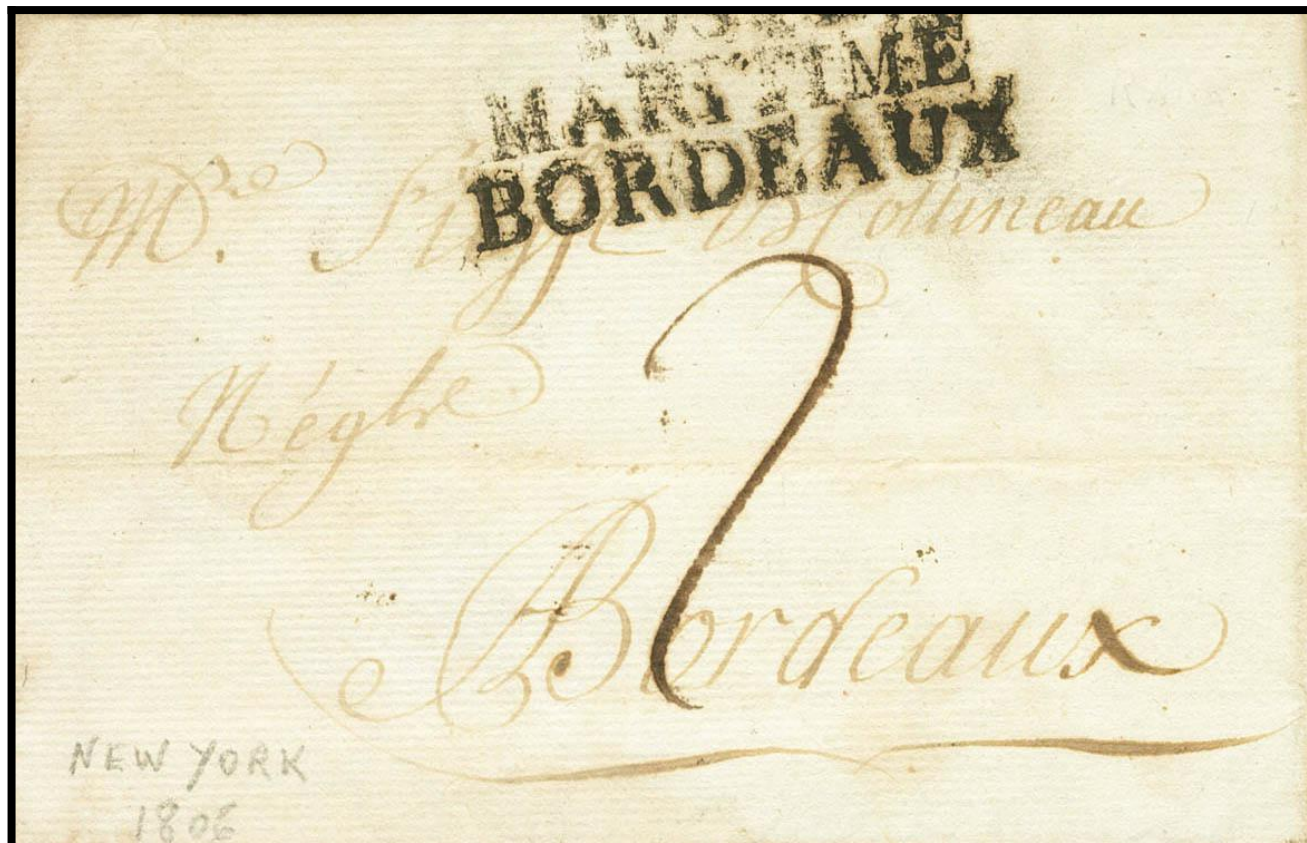 MARITIME
BORDEAUX
Mre
Négte
Bordeaux
2
NEW YORK
1806